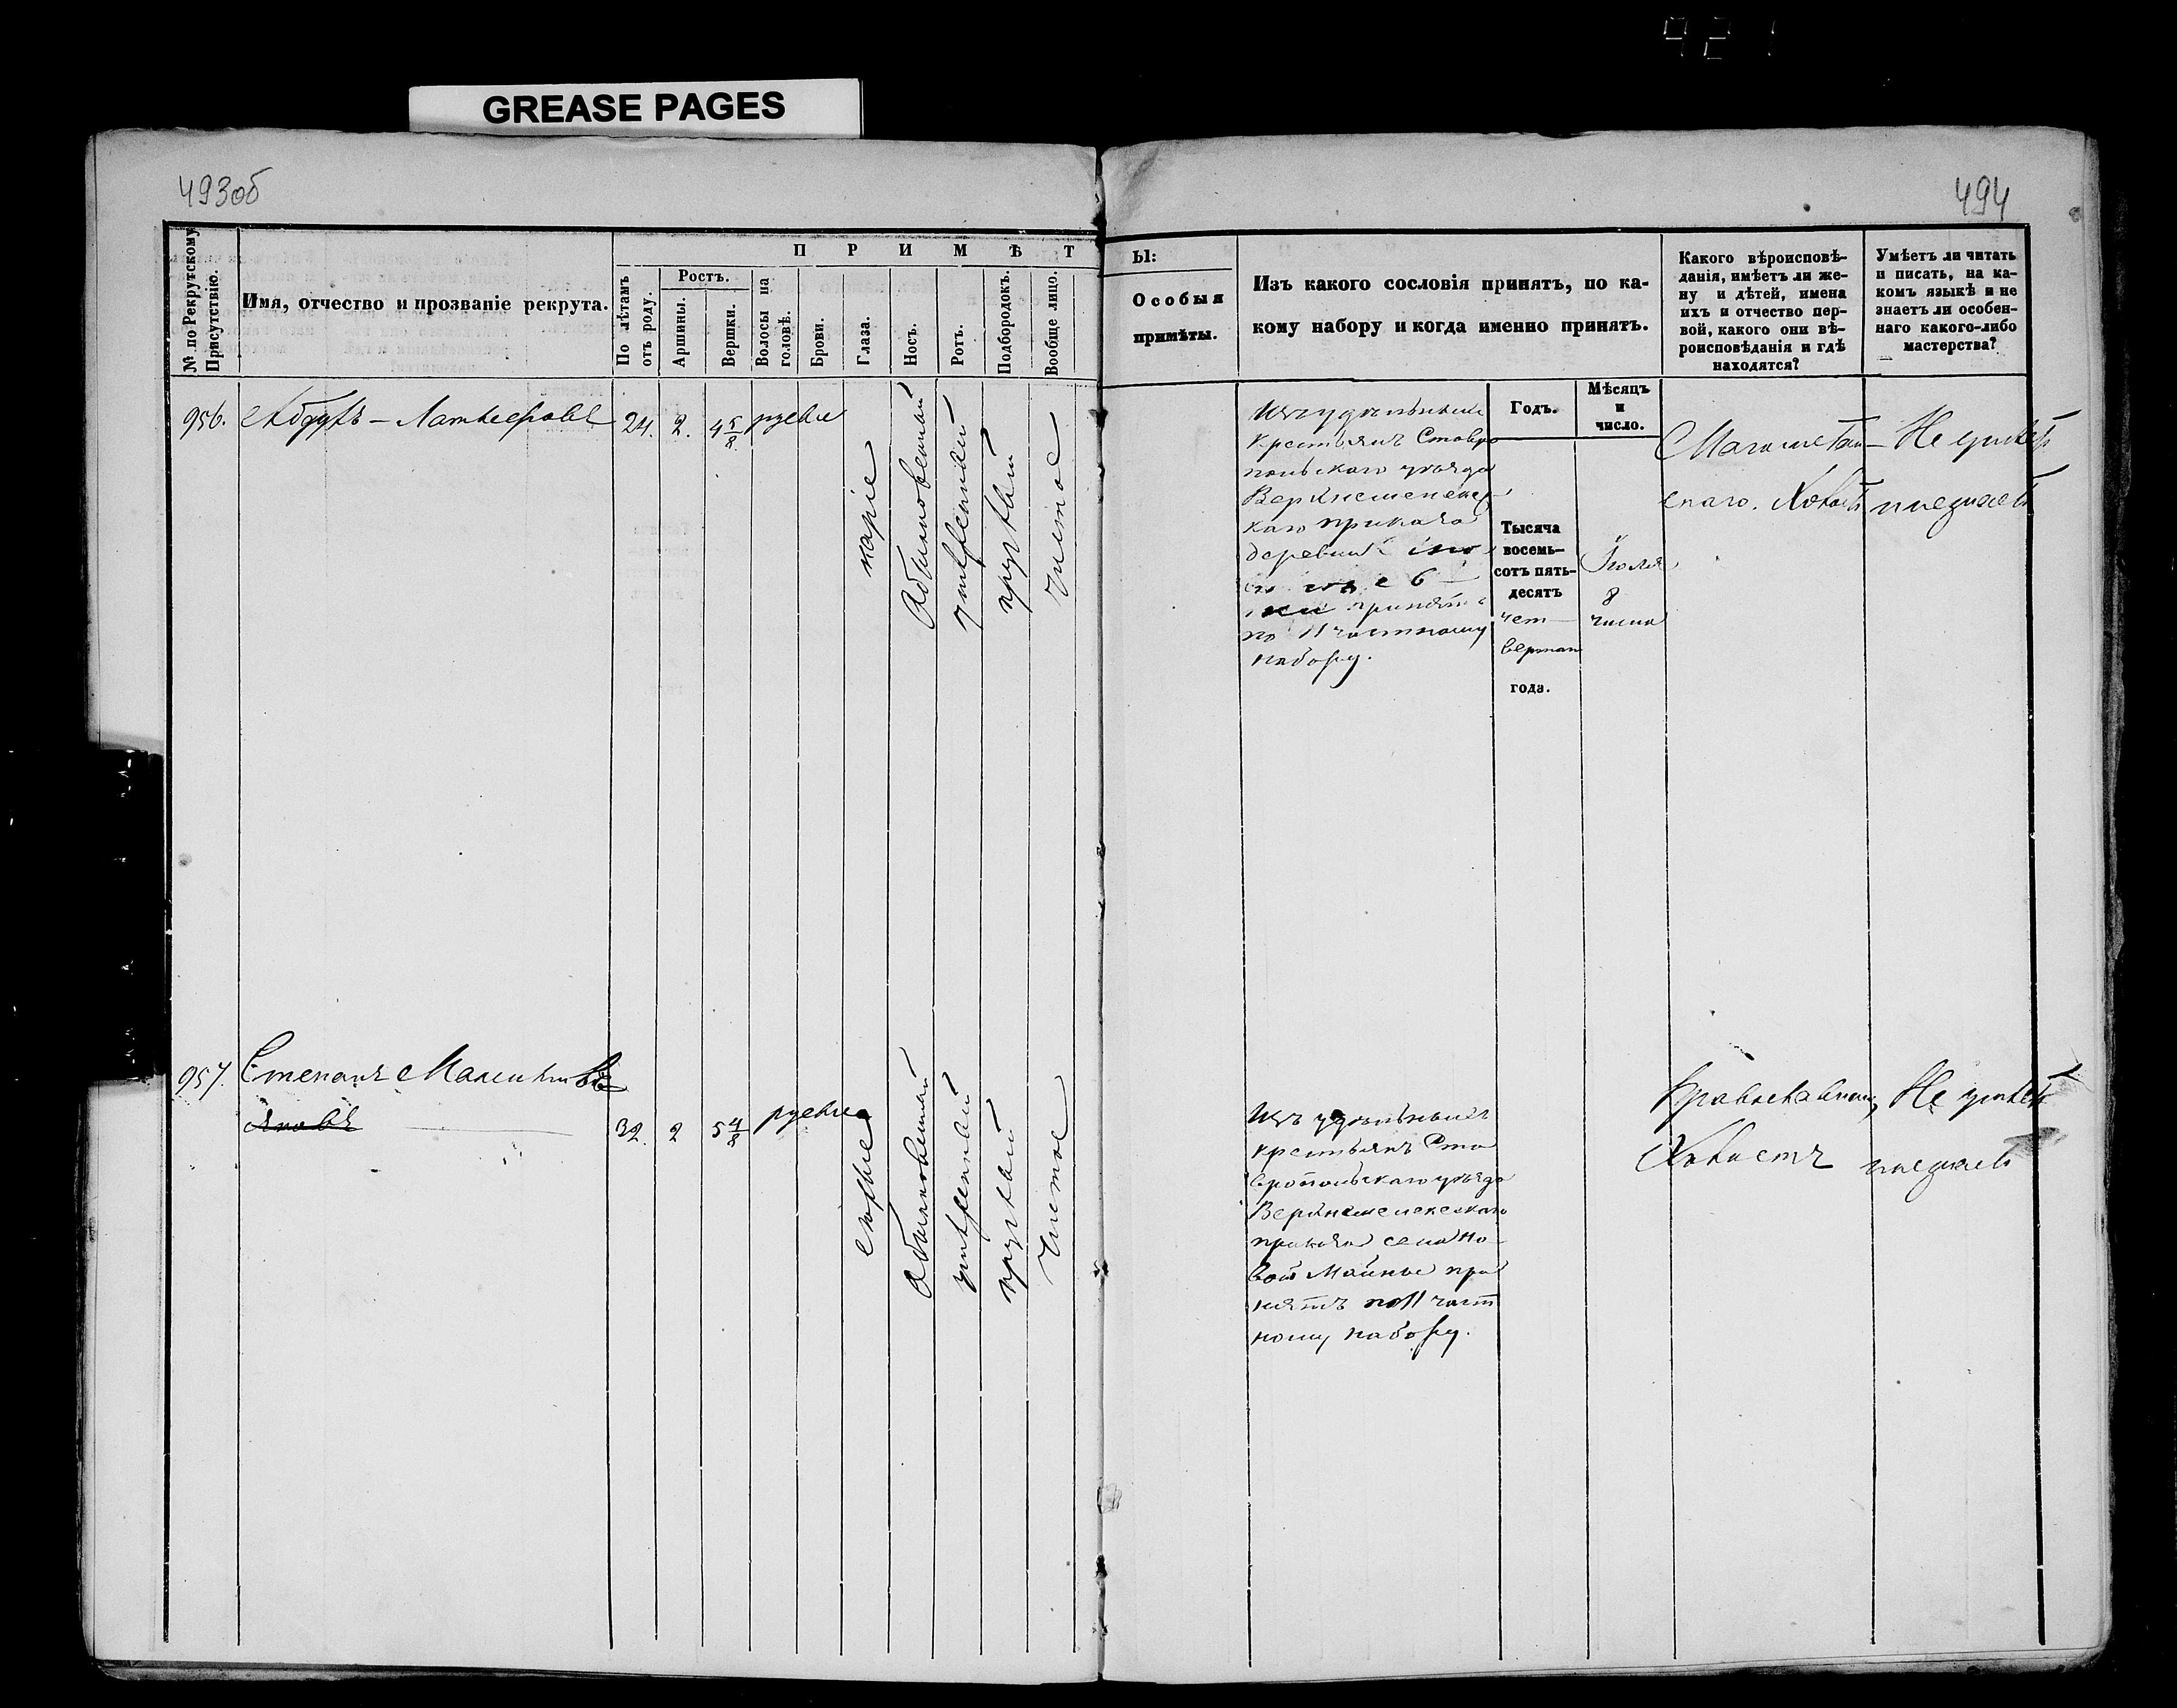 921
GREASE PAGES
493об
494
№ по Рекрутскому Присутствію.
Имя, отчество и прозваніе рекрута.
П Р И М Ѣ Т
По лѣтамъ отъ роду.
Ростъ.
Аршины.
Вершки.
Волосы на головѣ.
Брови.
Глаза.
Носъ.
Ротъ.
Подбородокъ.
Вообще лицо.
Ы:
Особыя
примѣты.
Изъ какого сословія принятъ, по ка-
кому набору и когда именно принятъ.
Какого вѣроисповѣ-
данія, имѣетъ ли же-
ну и дѣтей, имена
ихъ и отчество пер-
вой, какого они вѣ-
роисповѣданія и гдѣ
находятся?
Умѣетъ ли читать
и писать, на ка-
комъ языкѣ и не
знаетъ ли особен-
наго какого-либо
мастерства?
Годъ.
Мѣсяцъ
и
число.
956.
24. 2. 4 5/8 русые
каріе
обыкновенный
умѣренный
круглый
чистое
Изъ удѣльныхъ
крестьянъ Ставро
польскаго уѣзда
каго приказа
деревни
принятъ
по 11 частному
набору.
Тысяча
восемь-
сотъ пять-
десятъ
чет-
вертаго
года.
Іюля
8
числа
Магометан-
скаго. Холостъ
Не умѣетъ
и не знаетъ
957.
Степанъ
32. 2 5 4/8 русые
сѣрые
обыкновенный
умѣренный
круглый
чистое
Изъ удѣльныхъ
крестьянъ Ста
вропольскаго уѣзда
приказа села Но
вой Майны при
нятъ по 11 част
ному набору.
Православнаго
Холостъ
Не умѣетъ
и не знаетъ